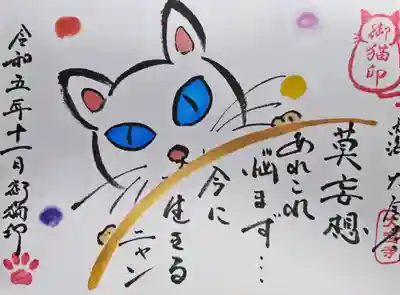 御猫印
莫妄想
あれこれ
悩まず…
今に
生きる
ニャン
令和五年十一月 御猫印